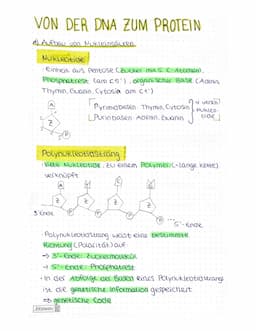 VON DER DNA ZUM PROTEIN
a) Aufbau von Nukleinsäuren
Nukleotide
· Einheit aus Pentose (Zucker mit 5 C-Atomen),
Phosphatrest (am C5'), organischer Base (Adenin,
Thymin, Guanin, Cytosin am C1')
Pyrimidinbasen Thymin, Cytosin
Purinbasen Adenin, Guanin
Z
P
Polynukleotidstrang
· viele Nukleotide zu einem Polymer (=lange Kette)
verknüpft
A G C
Z Z Z Z
P P P P
3' Ende
5'-Ende
· Polynukleotidstrang weist eine bestimmte
Richtung (Polarität) auf
→ 3'-Ende: Zuckermolekül
→ 5'-Ende: Phosphatrest
· In der Abfolge der Basen eines Polynukleotidstrangs
ist die genetische Information gespeichert
⇒ genetische Code